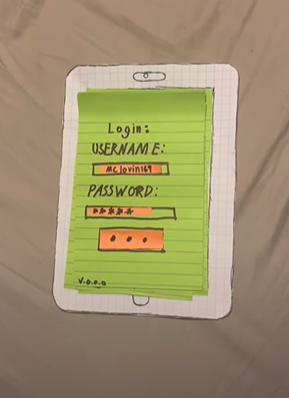 Login:
USERNAME:
mclovin169
PASSWORD:
*****
• • •
V.0.0.0